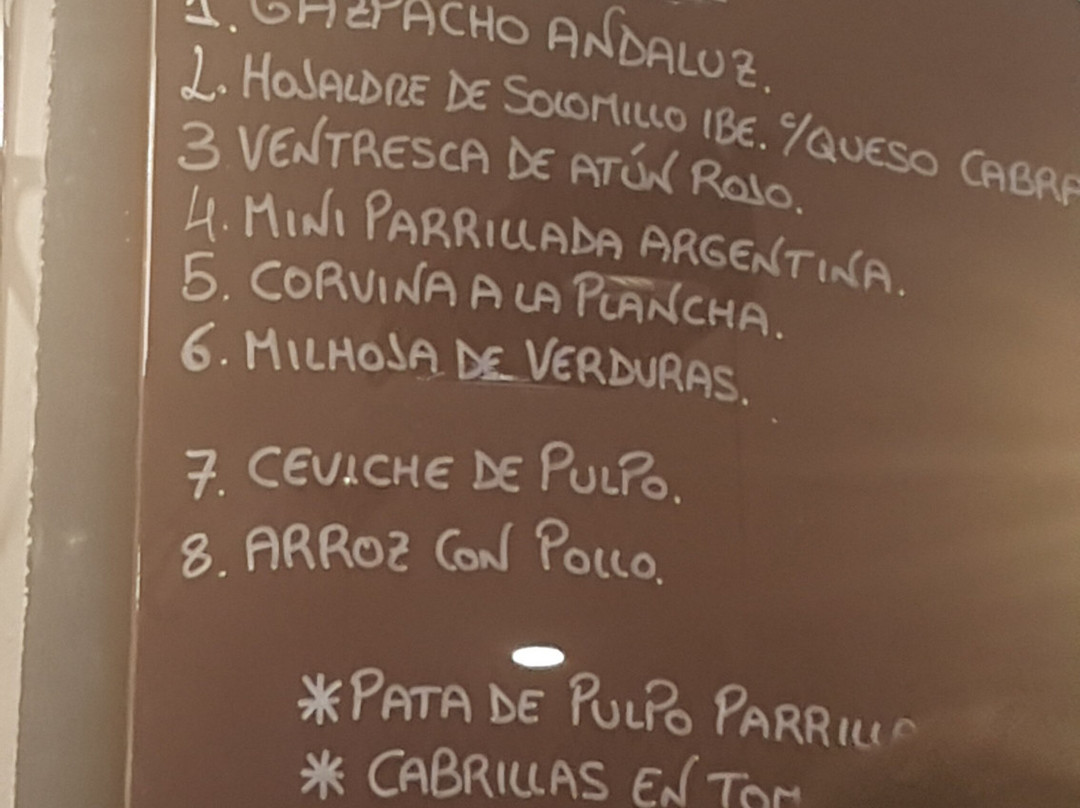 1. GAZPACHO ANDALUZ.
2. HOJALDRE DE SOLOMILLO IBE. C/QUESO CABRA
3 VENTRESCA DE ATÚN ROJO.
4. MINI PARRILLADA ARGENTINA.
5. CORVINA A LA PLANCHA.
6. MILHOJA DE VERDURAS.
7. CEVICHE DE PULPO.
8. ARROZ CON POLLO.
*PATA DE PULPO PARRILLA
* CABRILLAS EN TOM